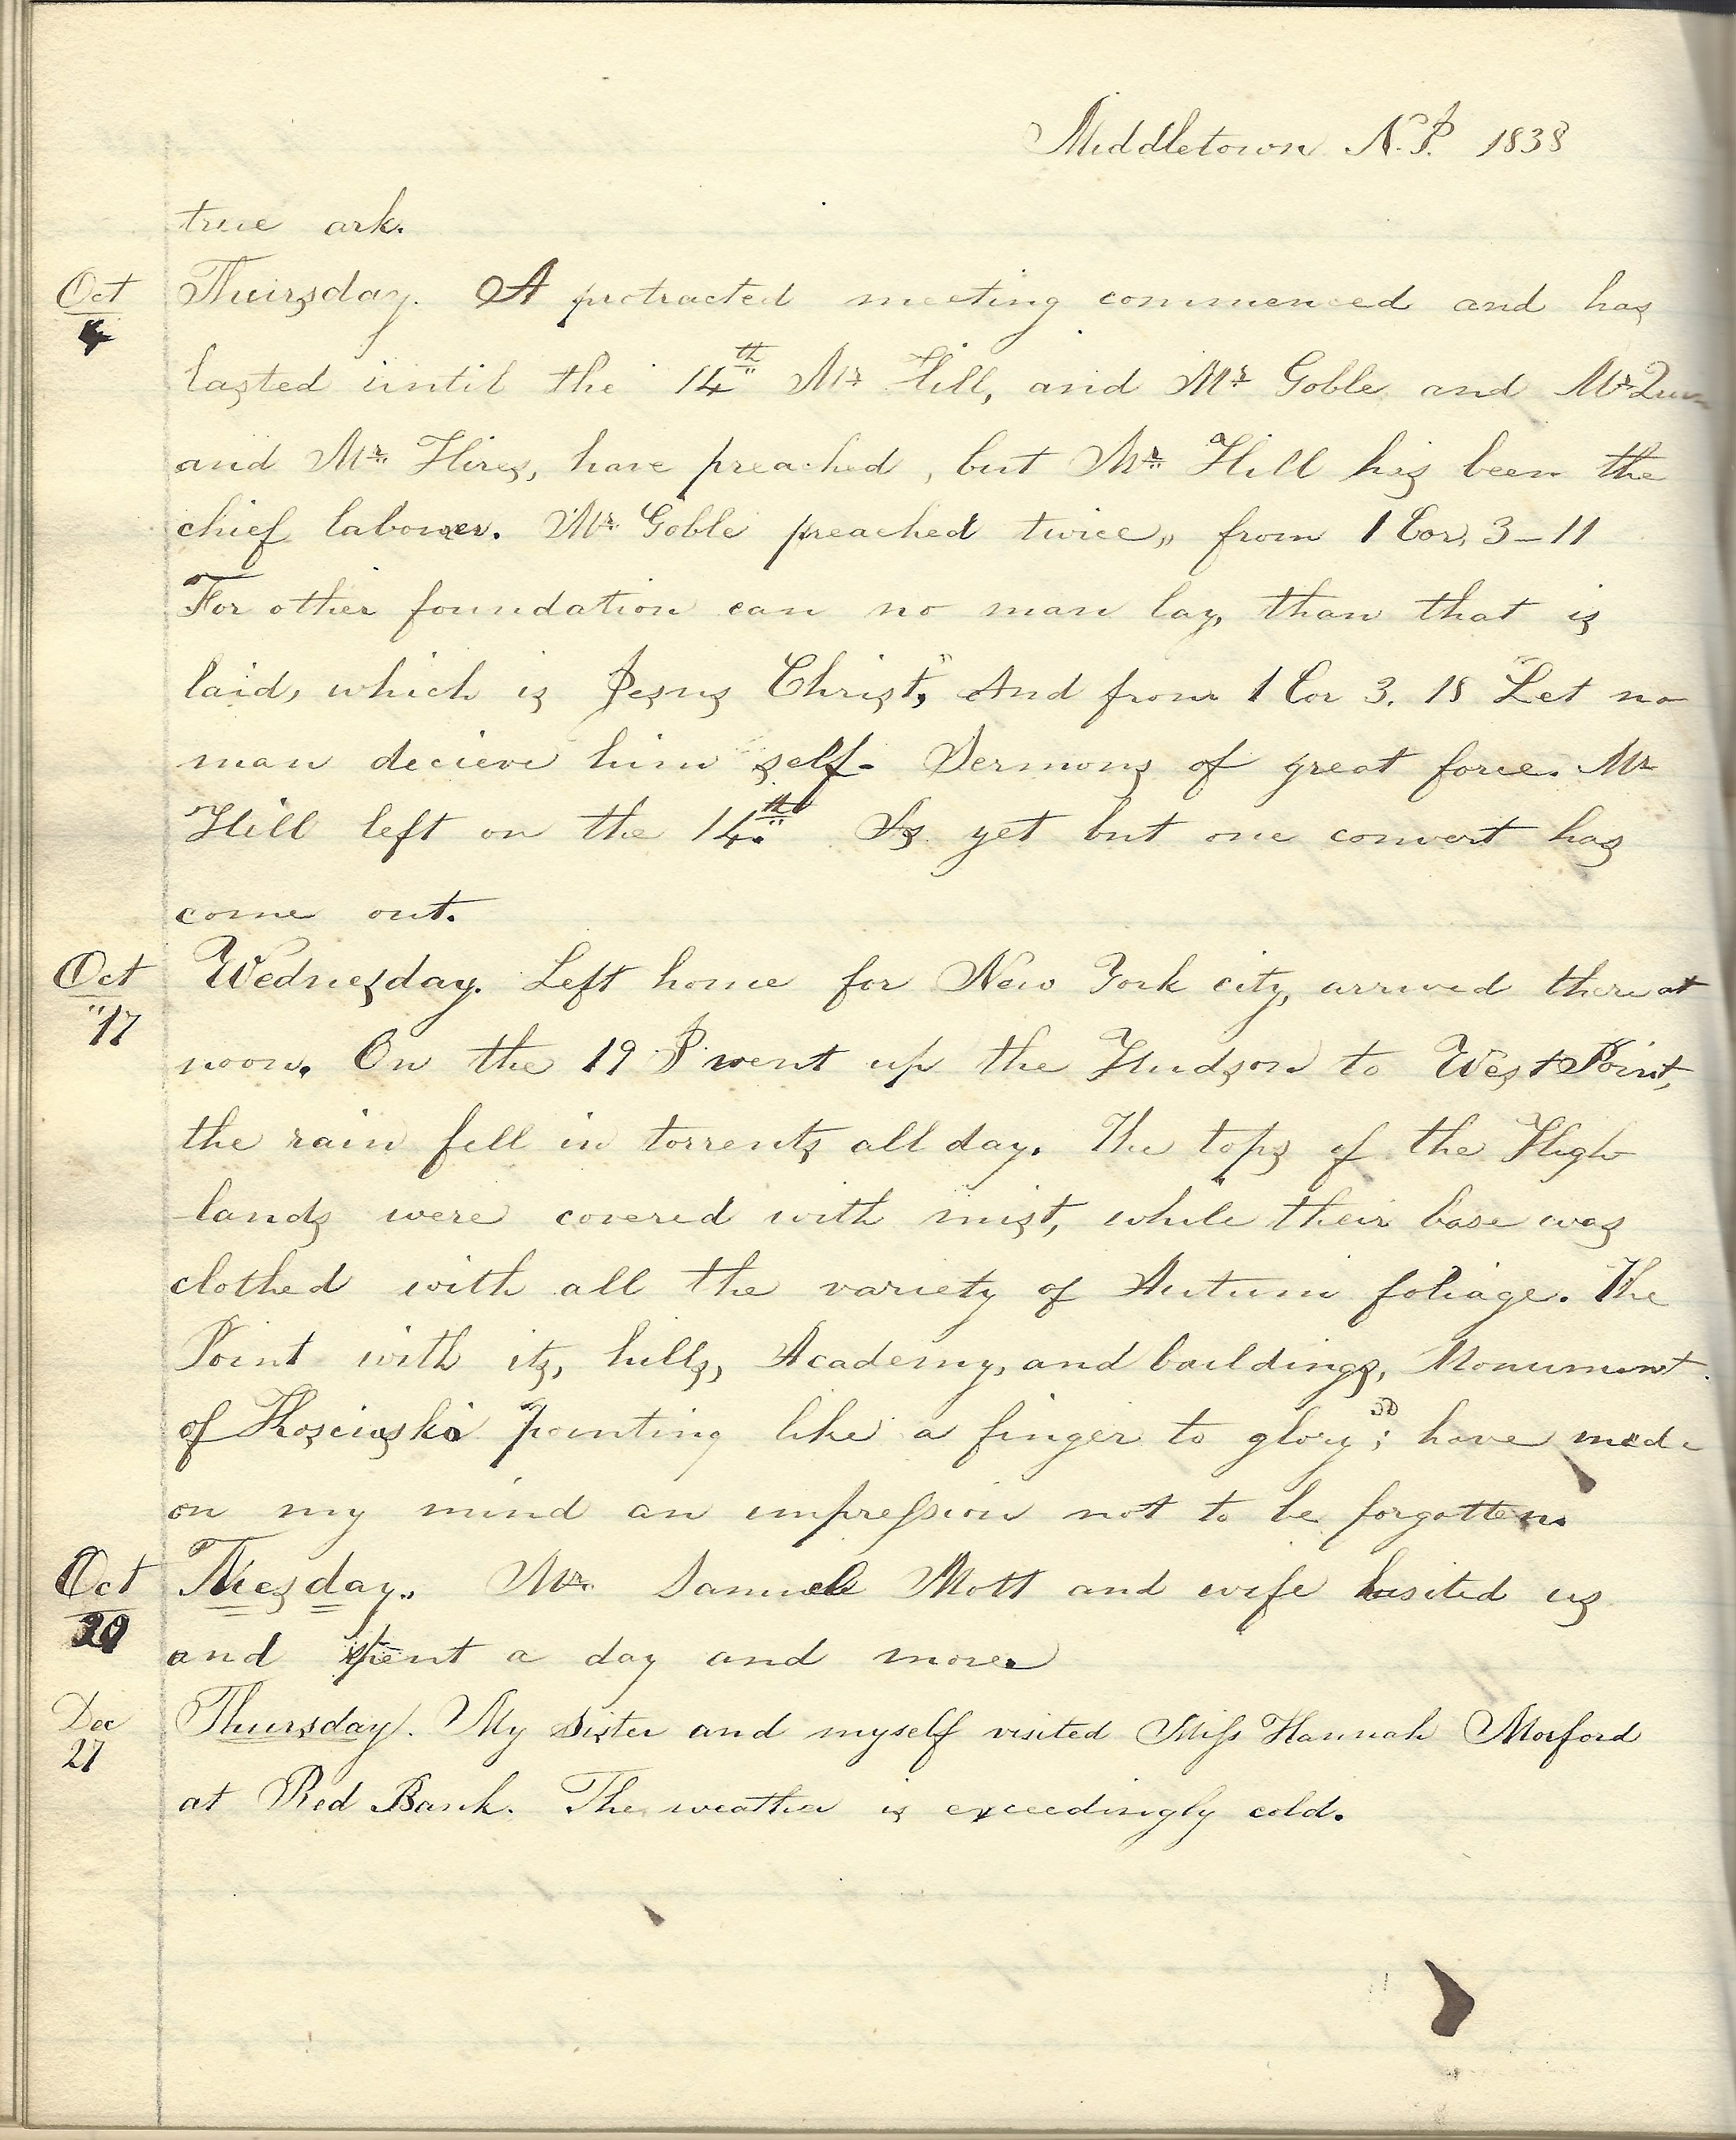 Middletown N.J. 1838
true ark.
Oct 4 Thursday. A protracted meeting commenced and has
lasted until the 14th Mr Hill, and Mr Goble and Mr
and Mr Hires, have preached, but Mr Hill his been the
chief laborer. Mr Goble preached twice,, from 1 Cor, 3-11
For other foundation can no man lay, than that is
laid, which is Jesus Christ," And from 1 Cor 3. 18 Let no
man decieve him self- Sermons of great force. Mr
Hill left on the 14.th As yet but one convert has
come out.
Oct 17 Wednesday. Left home for New York city, arrived there at
noon. On the 19 I went up the Hudson to West Point,
the rain fell in torrents all day. The tops of the High
lands were covered with mist, while their base was
clothed with all the variety of Autum foliage. The
Point with its, hills, Academy, and buildings, Monument
of Kosciusko pointing like a finger to glory; have made
on my mind an impression not to be forgotten.
Oct Tuesday.. Mr. Samuel Mott and wife visited us
and spent a day and more.
Dec 27 Thursday. My sister and myself visited Miss Hannah Morford
at Red Bank. The weather is exceedingly cold.